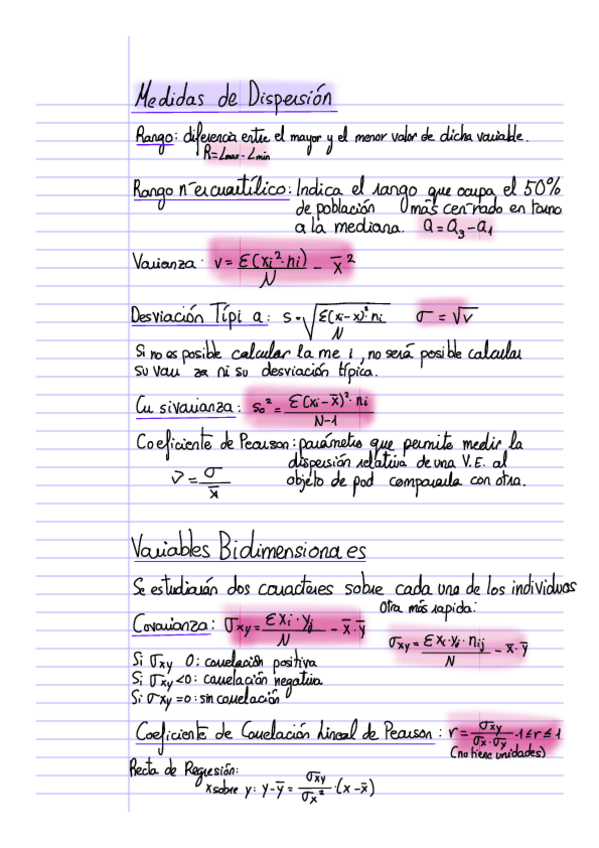 Medidas de Dispersión
Rango: diferencia entre el mayor y el menor valor de dicha variable.
R=Lmax-Lmin
Rango n-ercuartílico: Indica el rango que ocupa el 50%
de población más cen-rado en torno
a la mediana. Q=Q₃-Q₁
Varianza: v = Σ(xi²·ni)/N - x̄²
Desviación Típi a: s = √(Σ(xi-x)²·ni/N) σ = √v
Si no es posible calcular la me i, no será posible calcular
su vari za ni su desviación típica.
Cu sivarianza: s₀² = Σ(xi-x̄)²·ni/N-1
Coeficiente de Pearson: parámetro que permite medir la
dispersión relativa de una V.E. al
objeto de pod compararla con otra.
V = σ/x̄
Variables Bidimensiona es
Se estudiarán dos caracteres sobre cada uno de los individuos
Otra más rapida:
Covarianza: σxy = Σxi·yj/N - x̄·ȳ
σxy = Σxi·yi·nij/N - x̄·ȳ
Si σxy 0: correlación positiva
Si σxy<0: correlación negativa
Si σxy=0: sin correlación
Coeficiente de Correlación Lineal de Pearson: r = σxy/σx·σy -1≤r≤1
(no tiene unidades)
Recta de Regresión:
x sobre y: y-ȳ = σxy/σx²·(x-x̄)